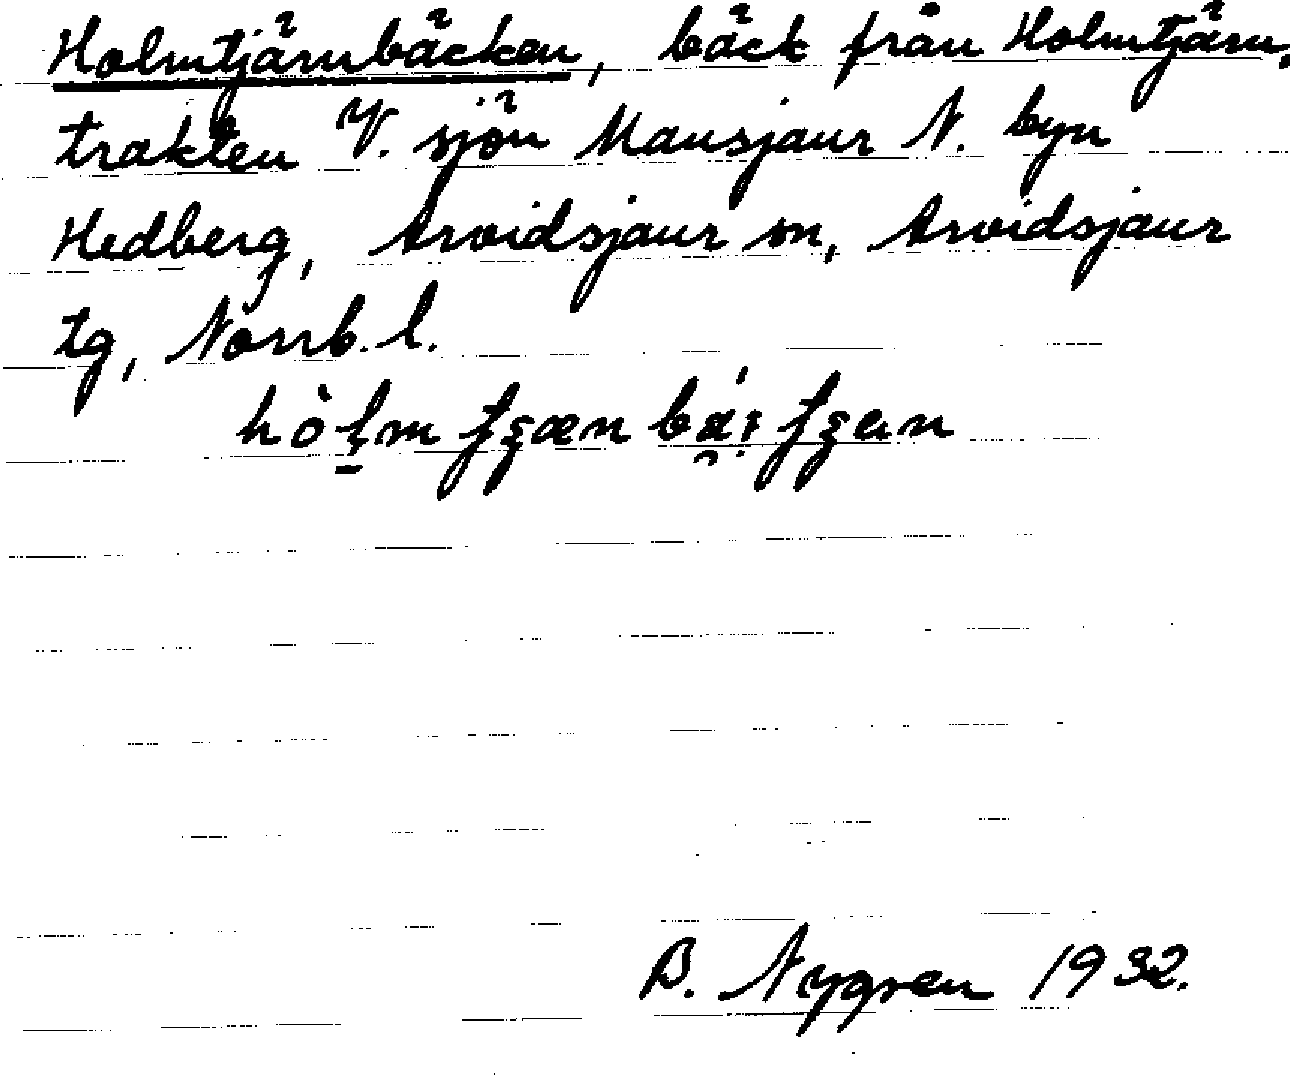 Holmtjärnbäcken, bäck från Holmtjärn-
trakten V. sjön Mausjaur N. byn
Hedberg, Arvidsjaur sn, Arvidsjaur
tg, Norrb. l.
B. Nygren 1932.